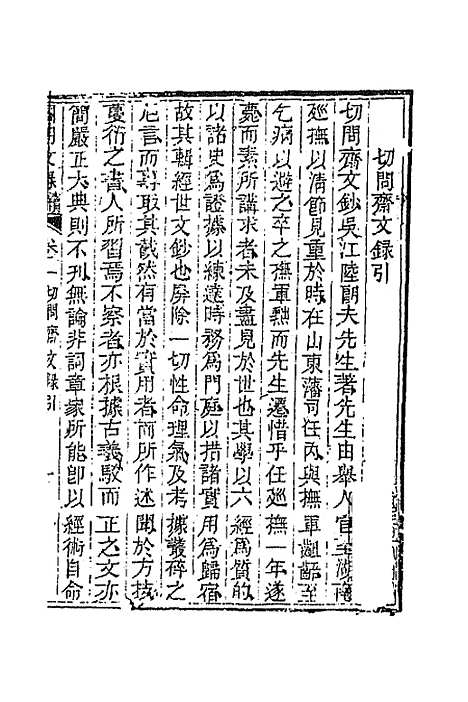 切問齋文錄引
切問齋文鈔吳江陸朗夫先生著先生由舉人官至湖南
廵撫以清節見重於時在山東藩司任內與撫軍齟齬至
乞病以避之卒之撫軍黜而先生遷惜乎任廵撫一年遂
薨而素所講求者未及盡見於世也其學以六經為質的
以諸史為證據以練達時務為門庭以措諸實用為歸宿
故其輯經世文鈔也屏除一切性命理氣及考據叢碎之
巵言而專取其截然有當於實用者而所作述聞於方技
蔓衍之書人所習焉不察者亦根據古義駁而正之文亦
簡嚴正大典則不刋無論非詞章家所能卽以經術自命
文錄 卷一 切問齋文錄引 一